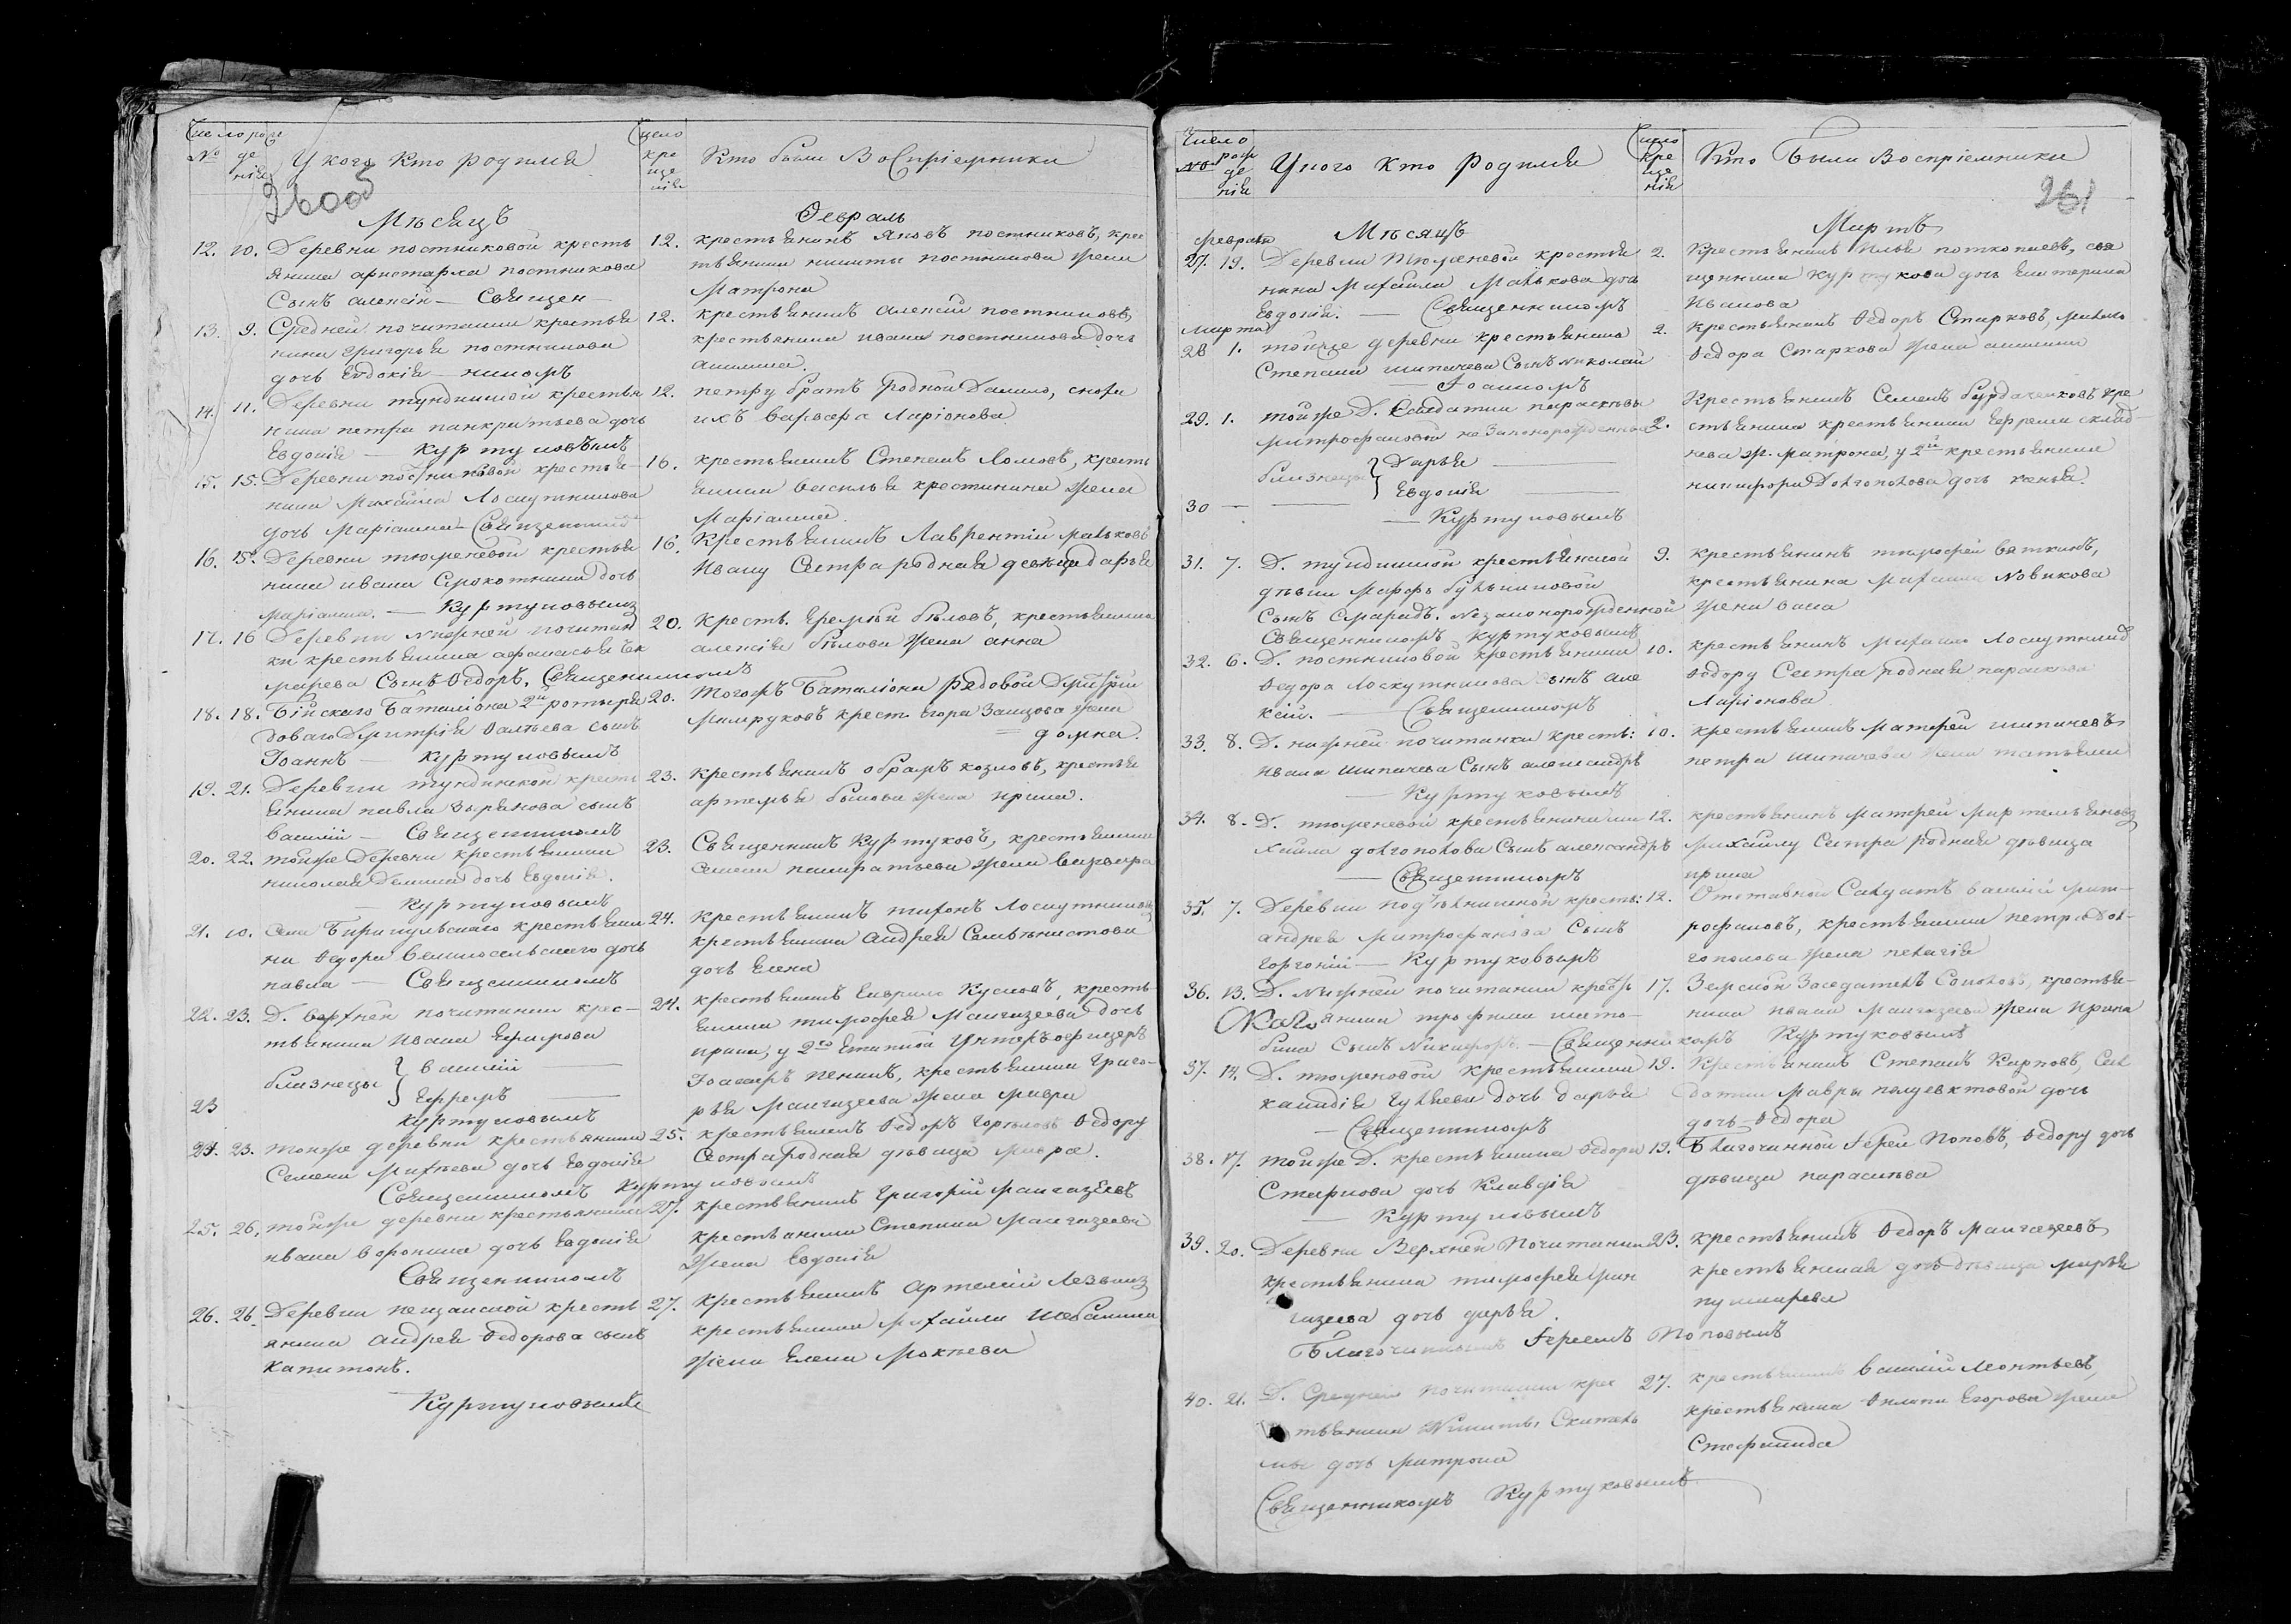 Число рож
№ де
нія
У кого кто родился
Число
кре
ще
нія
Кто были Воспріемники
260об
Мѣсяцъ
Февраль
12. 10. Деревни постниковой кресть
янина аристарха постникова
Сынъ алексій — Священ—
12. крестьянинъ Яковъ постниковъ, крес
тьянина никиты постникова жена
Матрона
13. 9. Средней почитанки крестья
нина григорья постникова
дочь Евдокія — никомъ
12. крестьянинъ алексій постниковъ,
крестьянина ивана постникова дочь
акилина.
14. 11. Деревни тундинской крестья
нина петра панкратьева дочь
Евдокія — Куртуковымъ
12. петру братъ родной Данило, сноха
ихъ варвара Ларіонова
15. 15. Деревни постниковой крестья—
нина Михайла Лоскутникова
дочь Маріанна — Священникомъ
16. крестьянинъ Степанъ Ломовъ, кресть
янина василья крестинина жена
Маріанна.
16. 15. Деревни тюменевой крестья
нина ивана Сыскоткина дочь
маріанна. — Куртуковымъ
16. Крестьянинъ Лаврентій Мальковъ
Ивану Сестра родная девица дарья
17. 16 Деревни нижней почитан
ки крестьянина афанасья
Сынъ Ѳедоръ, Священникомъ
20. Крест. Еремѣй бѣловъ, крестьянина
алексія бѣлова жена анна
18. 18. Бійскаго баталіона 2й роты ря
доваго Дмитрія сынъ
Іоаннъ — Куртуковымъ
20. Тогожъ баталіона рядовой
крест. Егора Заицова жена
домна.
19. 21. Деревни тундинской кресть
янина павла Зырянова сынъ
василій — Священникомъ
23. крестьянинъ абрамъ козловъ, крестья
артемья быкова жена ирина.
20. 22. тойже деревни крестьянина
николая Демина дочь Евдокія.
— Куртуковымъ
23. Священникъ Куртуковъ, крестьянина
Семена панкратьева жена варвара
21. 10. Села Бирикульскаго крестьяни
на Ѳедора великосельскаго дочь
павла — Священникомъ
24. крестьянинъ тихонъ Лоскутниковъ
крестьянина андрея Селиванистова
дочь Елена
22. 23. Д. верхней почитанки крес—
тьянина Ивана Ефимова
близнецы
василій —
23
Ефремъ —
Куртуковымъ
24. крестьянинъ гаврило Кусковъ, кресть
янина тимофея Мангазеева дочь
ирина, у 2го Етапной Унтеръ офицеръ
крестьянина Григо-
рья Мангазеева жена мавра
24. 23. тойже деревни крестьянина
Семена Михѣева дочь Евдокія
Священникомъ Куртуковымъ
25. крестьянинъ Ѳедоръ Гореловъ Ѳедору
Сестра родная дѣвица мавра.
25. 26. тойже деревни крестьянина
ивана воронина дочь Евдокія
Священникомъ
27. крестьянинъ Григорій мангазеевъ
крестьянина Степана мангазеева
жена Евдокія
26. 26. Деревни кресть
янина андрея Ѳедорова сынъ
капитонъ.
Куртуковымъ
27. крестьянинъ артемій Лезвинъ
крестьянина михайла Шабалина
жена Елена Мокѣева
Число
№ рож
де
нія
У кого Кто Родился
Число
кре
ще
нія
Кто Были Воспріемники
261
Мѣсяцъ
Мартъ
февраля
27. 19. Деревни Тюменевой крестья
нина Михайла Малькова дочь
Евдокія. — Священникомъ
2. Крестьянинъ Илья поткопаевъ, свя
щенника Куртукова дочь Екатерина
Иванова
марта
28 1. тойже деревни крестьянина
Степана шипачева Сынъ николай
— Іоанномъ
2. Крестьянинъ Ѳедоръ Старковъ,
Ѳедора Старкова жена
29. 1. тойже Д. Салдатки парасковьи
митрофановой незаконорожденные
близнецы
Дарья —
30 —
Евдокія —
— Куртуковымъ
2. Крестьянинъ Семенъ бурдаченковъ кре
стьянина крестьянина Ефрема склад-
нева ж. матрона, у 2й крестьянина
никифора Долгополова дочь
31. 7. Д. тундинской крестьянской
дѣвки Марфы
Сынъ Смарагдъ. Незаконорожденной
Священникомъ Куртуковымъ
9. крестьянинъ тимофей вяткинъ,
крестьянина Михаила Новикова
жена
32. 6. Д. постниковой крестьянина
Ѳедора Лоскутникова Сынъ але
ксій. — Священникомъ
10. крестьянинъ Михайло Лоскутниковъ
Ѳедору Сестра родная параскева
Ларіонова
33. 8. Д. нижней почитанки крест:
Ивана шипачева Сынъ александръ
— Куртуковымъ
10. крестьянинъ Матфей шипачевъ
петра шипачева жена татьяна
34. 8. Д. тюменевой крестьянина ми
хайла долгополова Сынъ александръ
— Священникомъ
12. крестьянинъ матфей мартемьяновъ
михайлу Сестра родная дѣвица
ирина
35. 7. Деревни подъѣльнишной крест:
андрея митрофанова Сынъ
горгоній — Куртуковымъ
12. Отставной Салдатъ василій мит-
рофановъ, крестьянина петра Дол-
гополова жена пелагія
36. 13. Д. Нижней почитанки крест
янина трофима шато-
бина Сынъ Никифоръ. — Священникомъ Куртуковымъ
17. Земской Заседатель Соколовъ, крестья-
нина ивана мангазеева жена Ирина
37. 14. Д. тюменевой крестьянина
дочь дарья
— Священникомъ
19. Крестьянинъ Степанъ Карповъ, Сал
датки мавры полуевктовой дочь
дочь Ѳедора
38. 17. тойже Д. крестьянина Ѳедора
Старкова дочь Клавдія
— Куртуковымъ
19. Благочинной Іерей Поповъ, Ѳедору дочь
дѣвица параскева
39. 20. Деревни Верхней Почитанки
крестьянина тимофея ман
газеева дочь дарья.
Благочиннымъ Іереемъ Поповымъ
23. крестьянинъ Ѳедоръ мангазеевъ
крестьянская дочь дѣвица марья
пушкарева
40. 21. Д. Средней почитанки кре
стьянина Никиты
дочь матрона
Священникомъ Куртуковымъ
27. крестьянинъ василій Леонтьевъ,
крестьянина Егорова жена
Стефанида